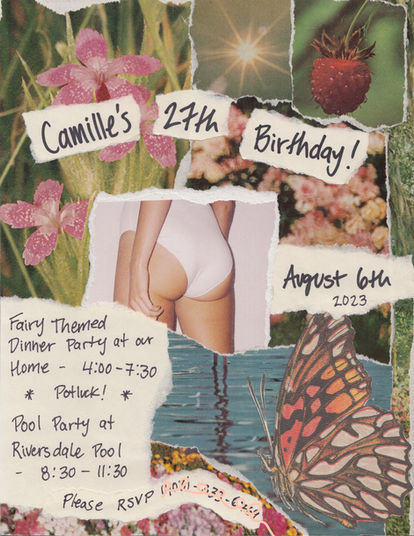 Camille's 27th Birthday!
August 6th
2023
Fairy Themed
Dinner Party at our
Home - 4:00-7:30
* Potluck! *
Pool Party at
Riversdale Pool
- 8:30-11:30
Please RSVP